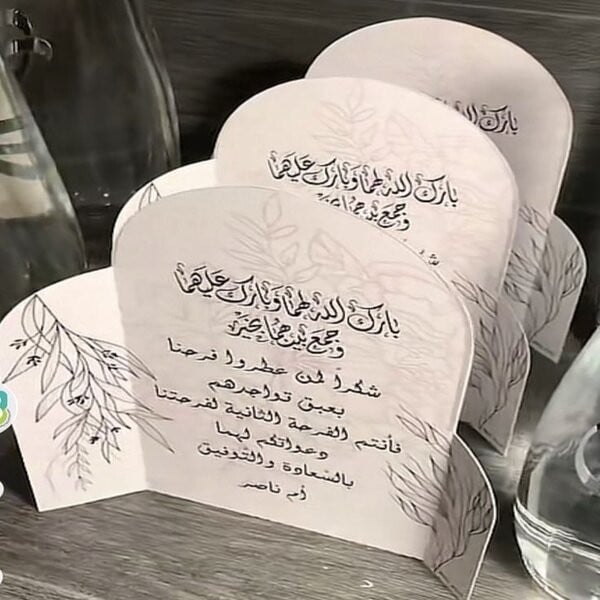 بارك الله لهما وبارك عليهما
وجمع بينهما بخير
شكراً لمن عطروا فرحنا
بعبق تواجدهم
فأنتم الفرحة الثانية لفرحتنا
دعواتكم لهما
بالسعادة والتوفيق
أم ناصر
بارك الله لهما وبارك عليهما
وجمع بينهما بخير
بارك الله